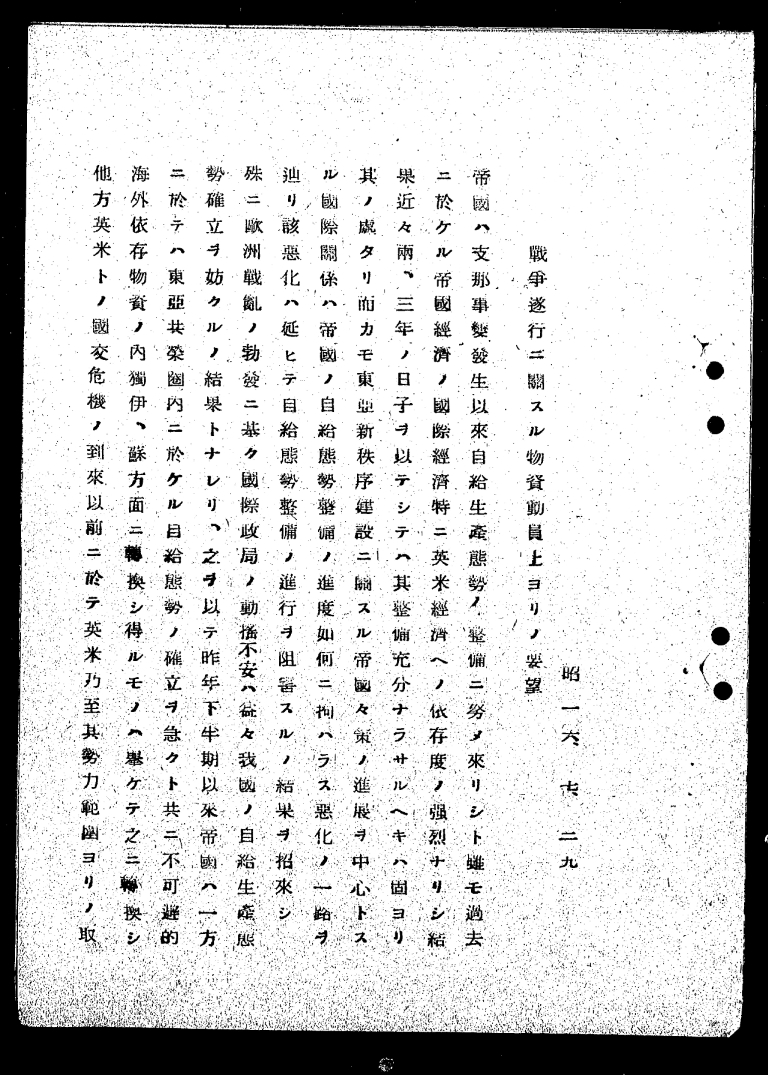 昭一六、七、二九
戰爭遂行ニ關スル物資動員上ヨリノ要望
帝國ハ支那事變發生以來自給生產態勢ノ整備ニ努メ來リシト雖モ過去
ニ於ケル帝國經濟ノ國際經濟特ニ英米經濟ヘノ依存度ノ强烈ナリシ結
果近々兩、三年ノ日子ヲ以テシテハ其整備充分ナラサルヘキハ固ヨリ
其ノ處タリ而カモ東亞新秩序建設ニ關スル帝國々策ノ進展ヲ中心トス
ル國際關係ハ帝國ノ自給態勢整備ノ進度如何ニ拘ハラス惡化ノ一路ヲ
辿リ該惡化ハ延ヒテ自給態勢整備ノ進行ヲ阻害スルノ結果ヲ招來シ
殊ニ歐洲戰亂ノ勃發ニ基ク國際政局ノ動搖不安ハ益々我國ノ自給生產態
勢確立ヲ妨クルノ結果トナレリ、之ヲ以テ昨年下半期以來帝國ハ一方
ニ於テハ東亞共榮圈內ニ於ケル自給態勢ノ確立ヲ急クト共ニ不可避的
海外依存物資ノ內獨伊、蘇方面ニ轉換シ得ルモノハ擧ケテ之ニ轉換シ
他方英米トノ國交危機ノ到來以前ニ於テ英米乃至其勢力範圍ヨリノ取